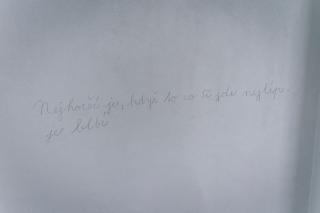 Nejhorší je, když to co ti jde nejlíp.
je blbě